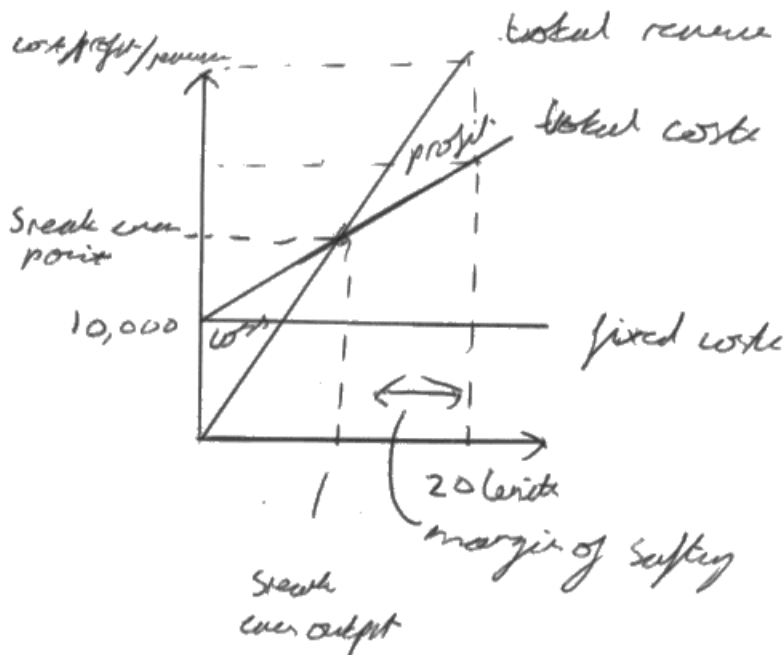 cost/profit/revenue
total revenue
profit
total costs
Break even
point
10,000
loss
fixed costs
20 units
margin of safty
Break
even output